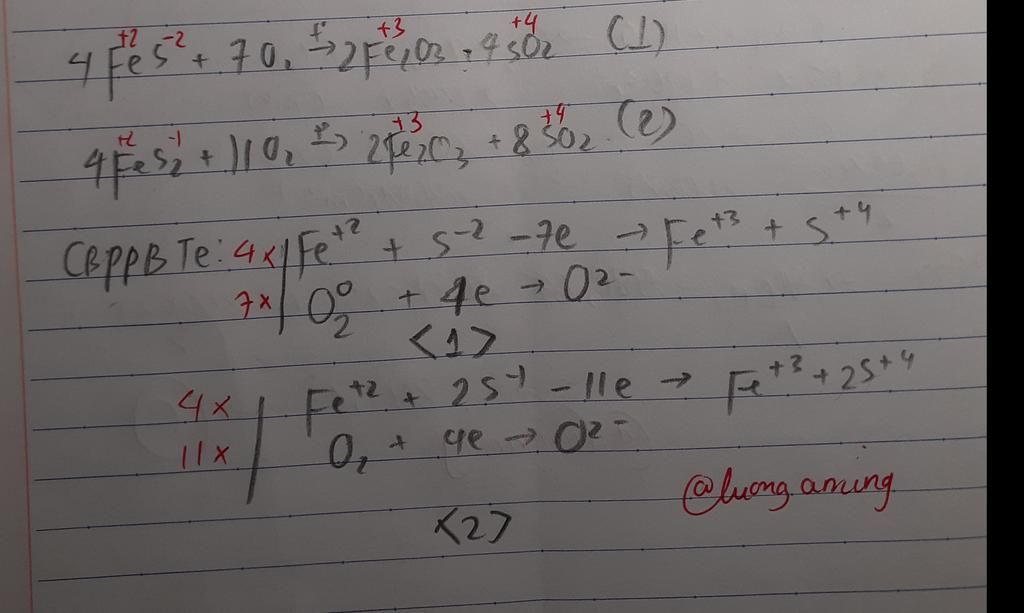 4Fe⁺²S⁻² + 7O₂ t°→ 2Fe⁺³₂O₃ + 4S⁺⁴O₂ (1)
4Fe⁺²S⁻¹₂ + 11O₂ t°→ 2Fe⁺³₂O₃ + 8S⁺⁴O₂ (2)
CBPPB Te: 4x | Fe⁺² + S⁻² - 7e → Fe⁺³ + S⁺⁴
7x | O⁰₂ + 4e → O²⁻
<1>
4x | Fe⁺² + 2S⁻¹ - 11e → Fe⁺³ + 2S⁺⁴
11x | O₂ + 4e → O²⁻
@luong.aming
<2>